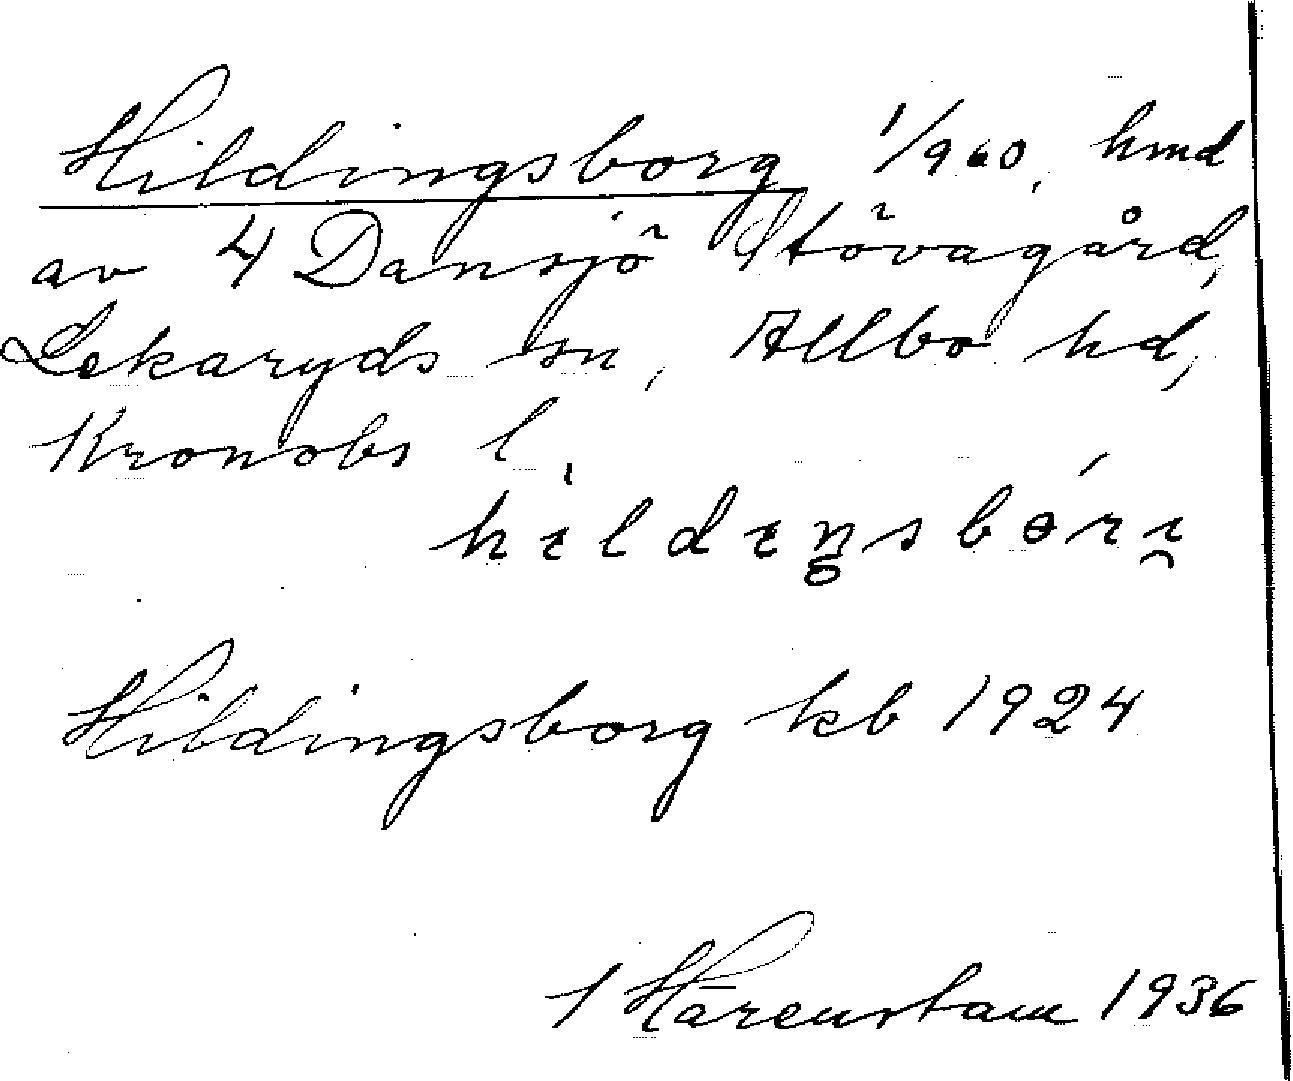 Hildingsborg 1/960, hmd
av 4 Dansjö Stövagård,
Lekaryds sn, Allbo hd,
Kronobs l.
Hildingsborg kb 1924
1 Härenstam 1936